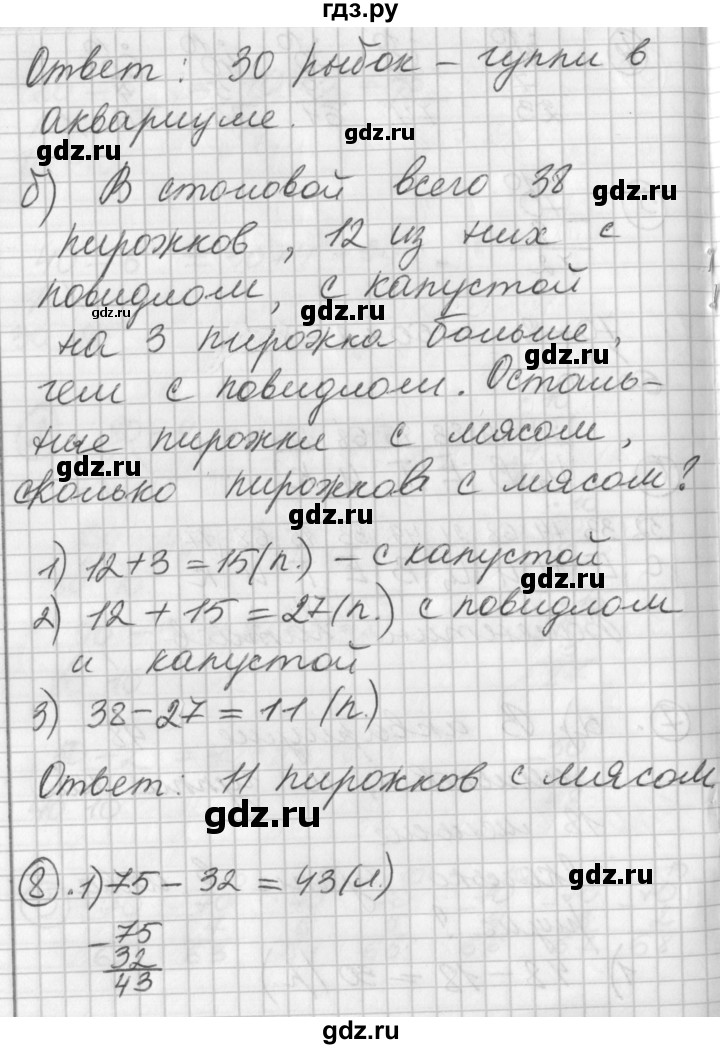 гдз.ру
Ответ: 30 рыбок - гуппи в
аквариуме.
gdz.ru
б) В столовой всего 38
gdz.ru
пирожков, 12 из них с
повидлом, с капустой
gdz.ru
gdz.ru
на 3 пирожка больше,
gdz.ru
чем с повидлом. Осталь-
ные пирожки с мясом,
gdz.ru
gdz.ru
сколько пирожков с мясом?
gdz.ru
1) 12+3=15(п.) - с капустой
gdz.ru
2) 12+15=27(п.) с повидлом
и капустой
3) 38-27=11(п.)
Ответ: 11 пирожков с мясом
gdz.ru
gdz.ru
8. 1) 75-32=43(л.)
- 75
32
43
gdz.ru